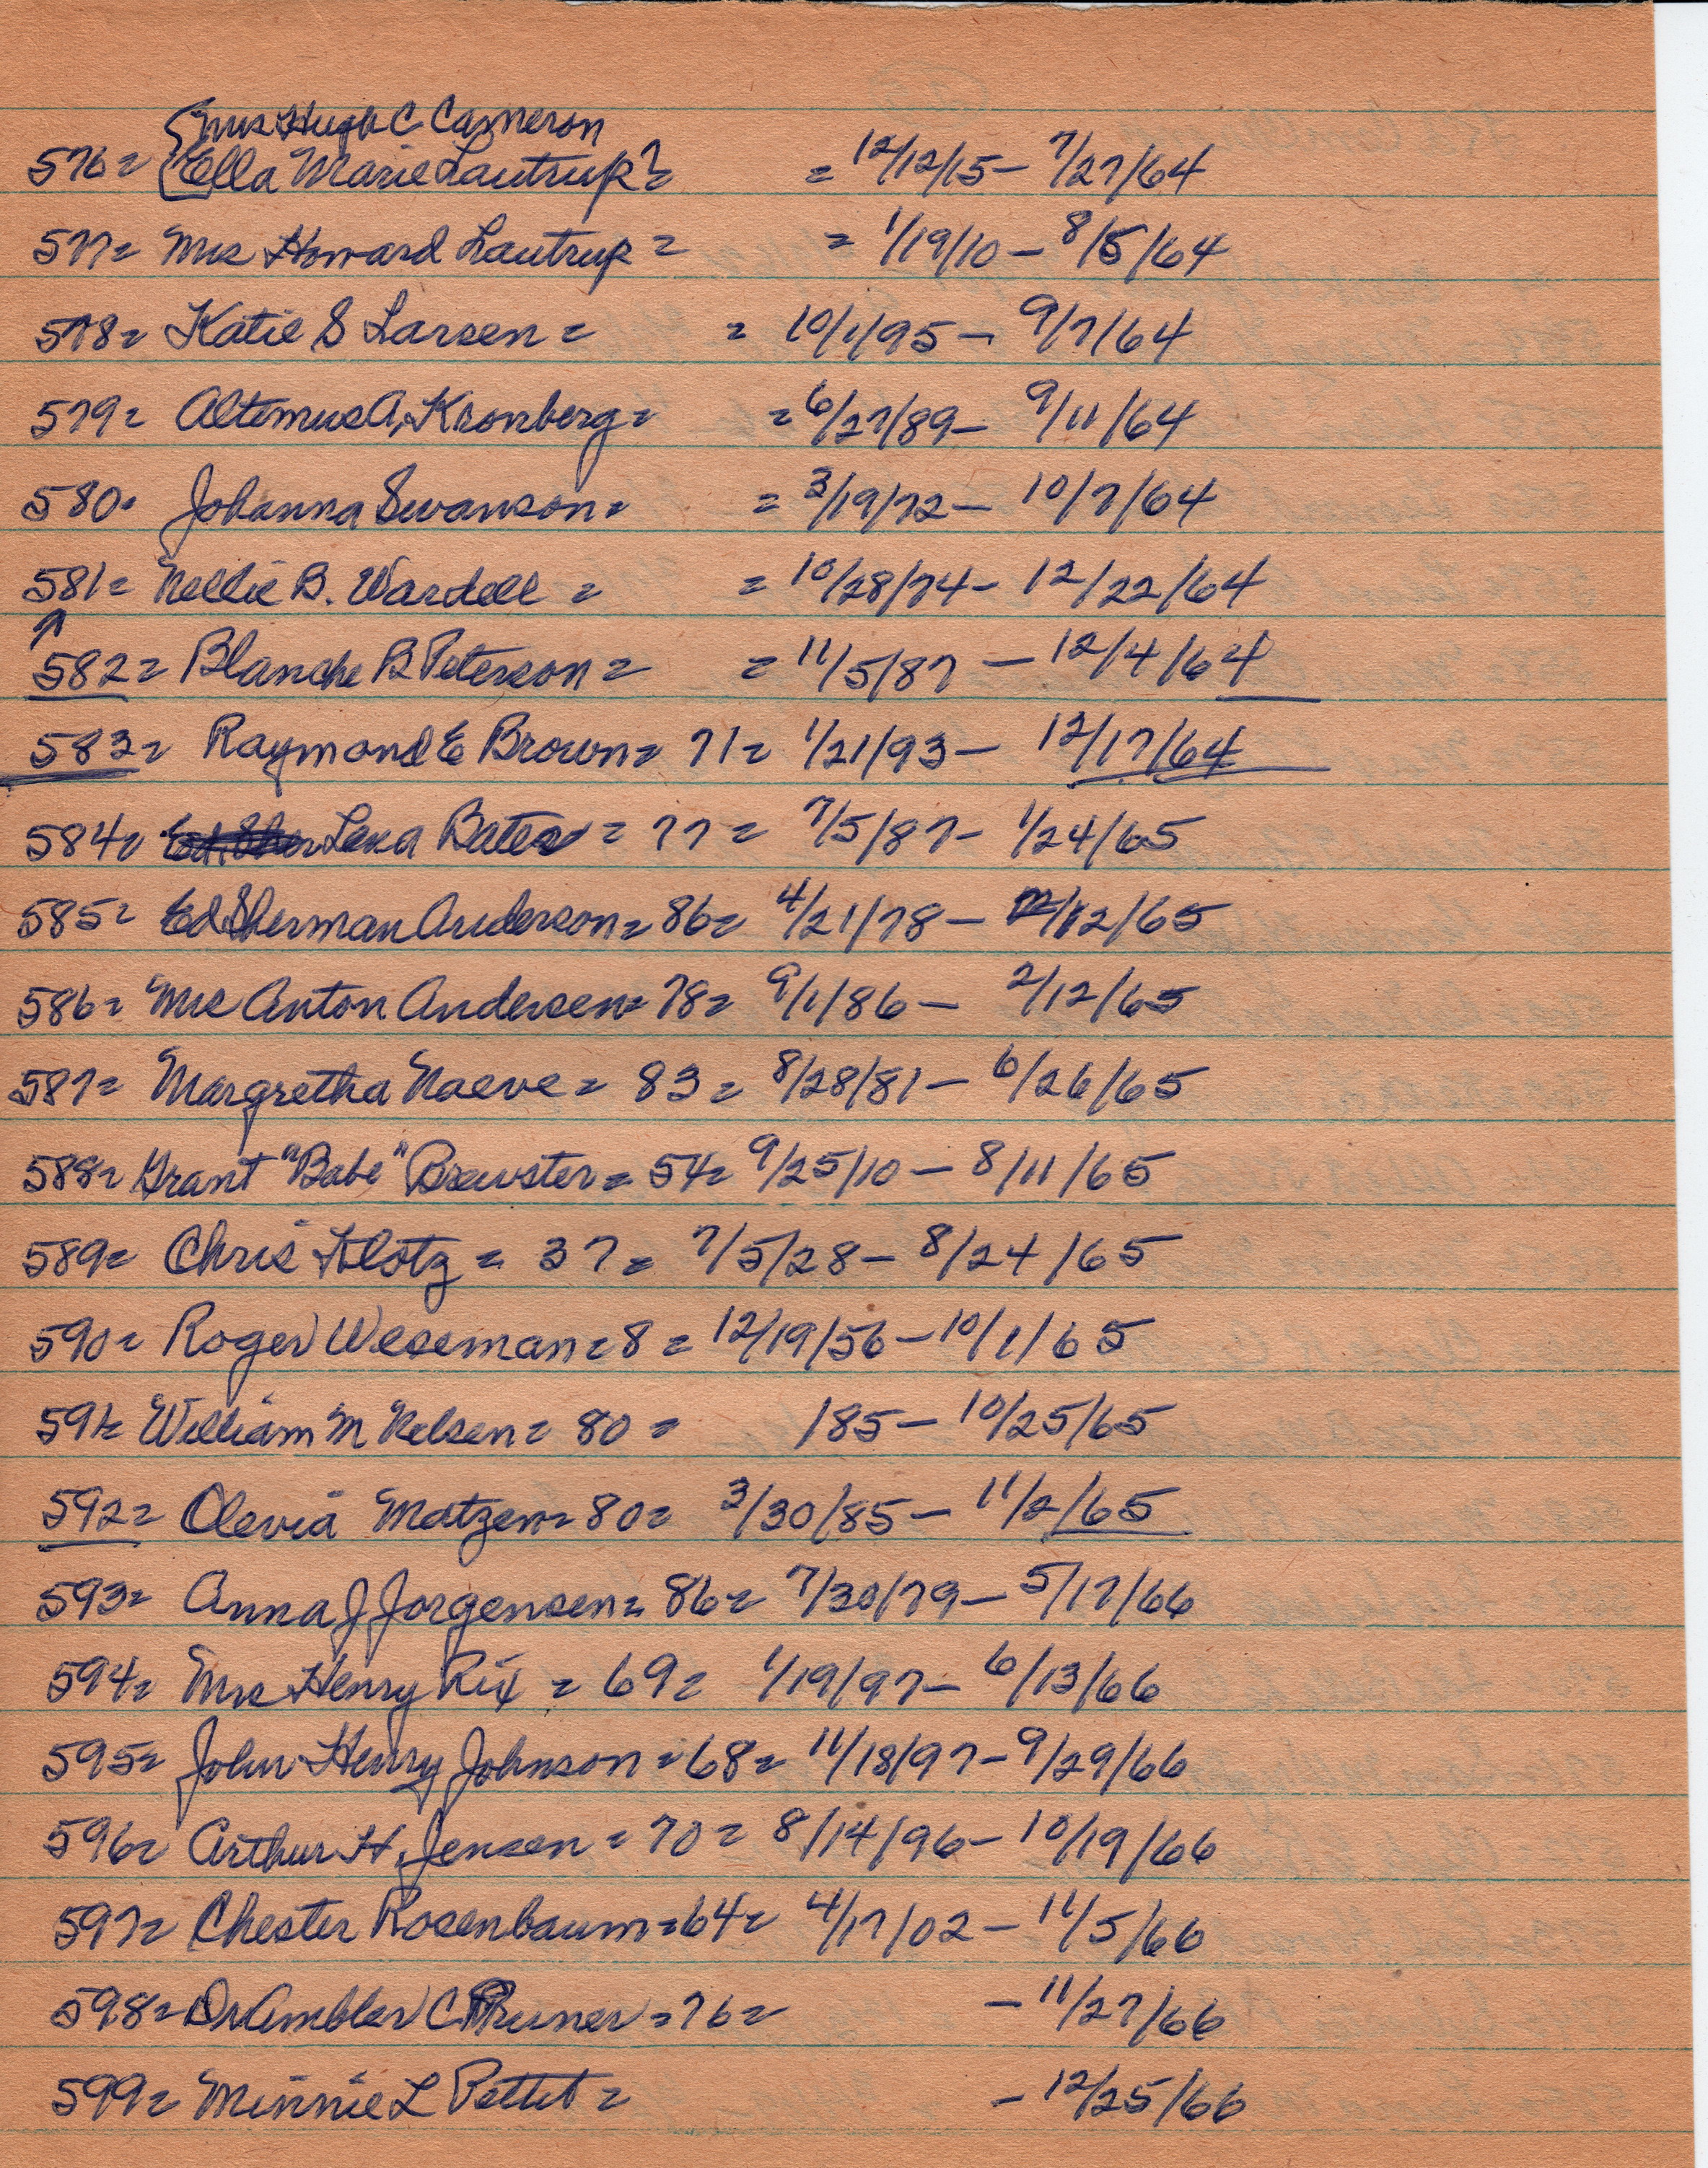 {Mrs Hugh C Cameron
576= {Ella Marie Lautrup}= = 12/12/15- 7/27/64
577= Mrs Howard Lautrup = = 1/19/10 - 8/5/64
578= Katie S Larsen = = 10/1/95 - 9/7/64
579= Altemus A. Kronberg= = 6/27/89- 9/11/64
580= Johanna Swanson= = 3/19/72- 10/7/64
581= Nellie B. Wardell = = 10/28/74- 12/22/64
↑
582= Blanche B Peterson = = 11/5/87 - 12/4/64
583= Raymond E Brown= 71= 1/21/93- 12/17/64
584= Lena Bates = 77 = 7/5/87- 1/24/65
585= Ed Sherman Anderson= 86= 4/21/78- /12/65
586= Mrs Anton Andersen= 78= 9/1/86- 2/12/65
587= Margretha Naeve = 83 = 8/28/81- 6/26/65
588= Grant "Babe" Brewster = 54= 9/25/10- 8/11/65
589= Chris Klotz = 37= 7/5/28- 8/24/65
590= Roger Weseman= 8 = 12/19/56-10/1/65
591= William M Nelsen= 80 = /85- 10/25/65
592= Olevia Matzen= 80= 3/30/85- 11/2/65
593= Anna J Jorgensen= 86= 7/30/79- 5/17/66
594= Mrs Henry Rix = 69= 1/19/97- 6/13/66
595= John Henry Johnson = 68= 11/18/97-9/29/66
596= Arthur H. Jensen = 70 = 8/14/96- 10/19/66
597= Chester Rosenbaum=64= 4/17/02 - 11/5/66
598= Dr Ambler C Pruner =76= - 11/27/66
599= Minnie L Pettit = - 12/25/66